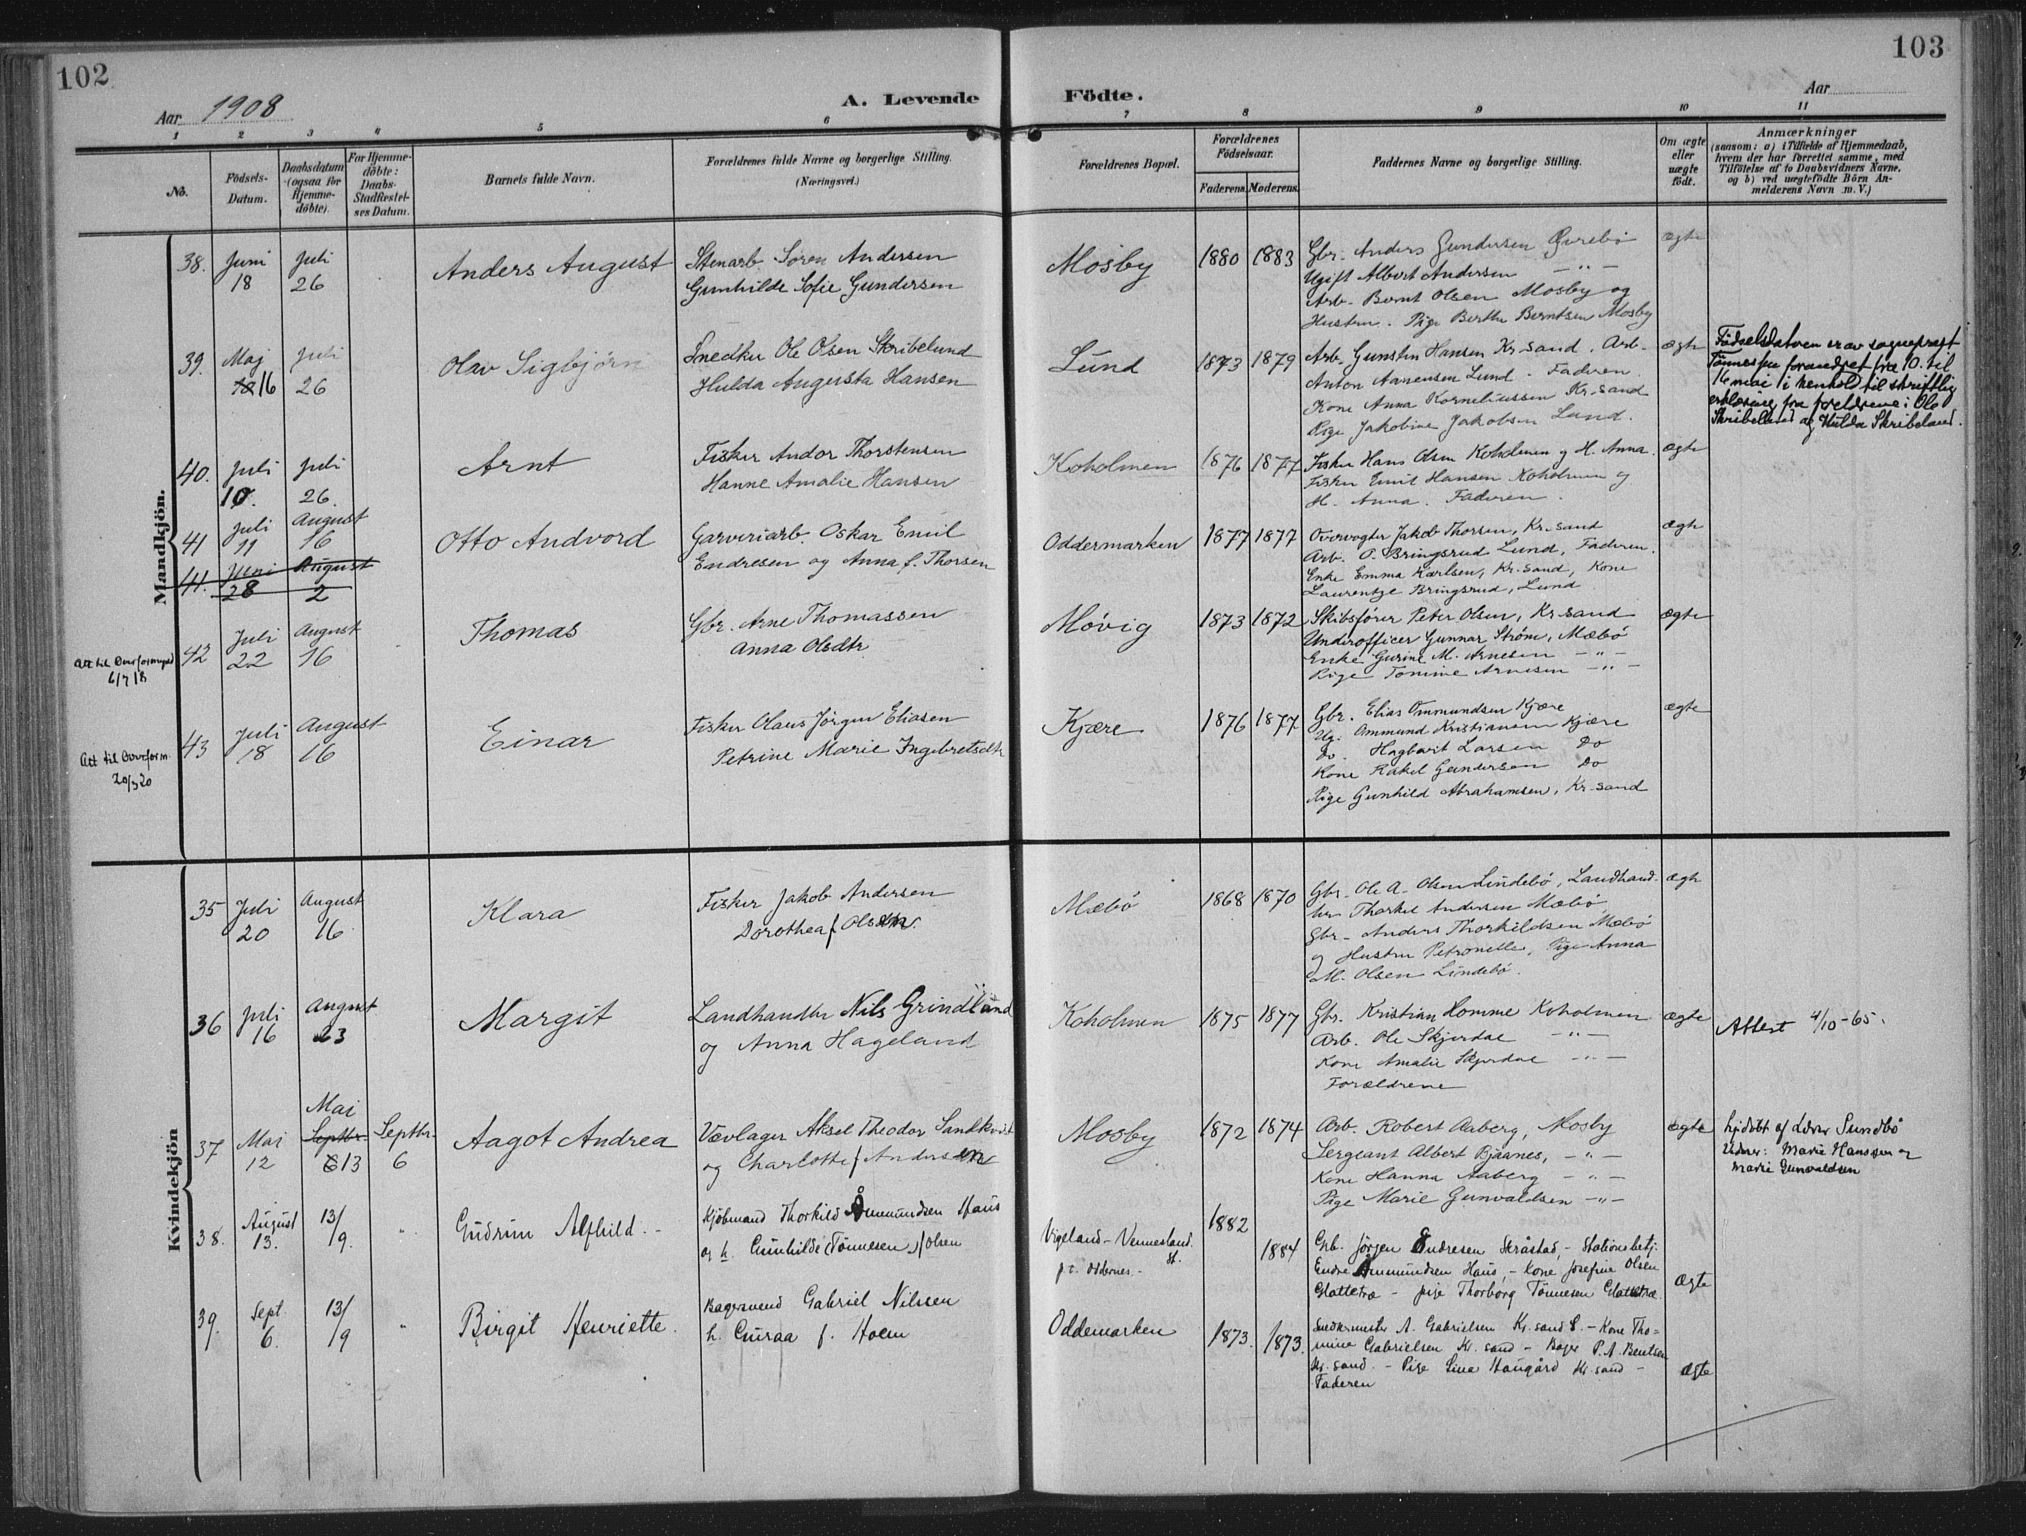 102
103
Aar 1908
A. Levende
Födte.
Aar
1 2 3 4 5 6 7 8 9 10 11
No.
Födsels-Datum.
Daabsdatum (ogsaa for Hjemme-döbte).
For Hjemme-döbte: Daabs-Stadfæstel-ses Datum.
Barnets fulde Navn.
Forældrenes fulde Navne og borgerlige Stilling.
(Næringsvei.)
Forældrenes Bopæl.
Forældrenes Födselsaar.
Faderens. Moderens.
Faddernes Navne og borgerlige Stilling.
Om ægte eller uægte födt.
Anmærkninger
(saasom: a) i Tilfælde af Hjemmedaab,
hvem der har forrettet samme, med
Tilföielse af to Daabsvidners Navne,
og b) ved uægtefödte Börn An-
melderens Navn m. V.)
Mandkjön.
38. Juni 18 Juli 26
Anders August
Stenarb. Soren Andersen
Gunhilde Sofie Gundersen
Mosby 1880 1883
Gbr. Anders Gundersen Øvrebö
Ugift Albert Andersen — " —
Arb. Bernt Olsen Mosby og
Hustru. Pige Berthe Berntsen Mosby
ægte
39. Maj 16 Juli 26
Olav Sigbjörn
Snedker Ole Olsen Skribelund
Hulda Augusta Hansen
Lund 1873 1879
Arb. Gunsten Hansen Kr.sand. Arb.
Anton Aanensen Lund. Faderen.
Kone Anna Korneliussen Kr.sand
Pige Jakobine Jakobsen Lund.
ægte
Födselsdatoen er av sogneprest
Tönnessen forandret fra 10. til
16 mai i henhold til skriftlig
erklæring fra foreldrene: Ole
Skribeland og Hulda Skribeland.
40. Juli 10. Juli 26.
Arnt
Fisker Andor Thorstensen
Hanne Amalie Hansen
Koholmen 1876 1877
Fisker Hans Olsen Koholmen og H. Anna.
Fisker Emil Hansen Koholmen og
H. Anna. Faderen.
ægte
41 Juli 11 August 16
Otto Andvord
Garveriarb. Oskar Emil
Endresen og Anna f. Thorsen
Oddermarken 1877 1877
Overvogter Jakob Thorsen, Kr.sand
Arb. O. Bringsrud Lund, Faderen.
Enke Emma Karlsen, Kr.sand, Kone
Laurentze Bringsrud, Lund
ægte
41. Juni 28 August 2
Att til Overformynd 6/7 18
42 Juli 22 August 16
Thomas
Gbr. Arne Thomassen
Anna Olsdtr
Møvig 1873 1872
Skibsfører Peter Olsen, Kr.sand
Underofficer Gunnar Strøm, Mæbö
Enke Gurine M. Arnesen — " —
Pige Tomine Arnesen — " —
ægte
Att til Overform. 20/3 20
43 Juli 18 August 16
Einar
Fisker Olaus Jörgen Eliasen
Petrine Marie Ingebretsdtr
Kjære 1876 1877
Gbr. Elias Ommundsen Kjære
Ug. Ommund Kristiansen Kjære
do. Hagbart Larsen Do
Kone Rakel Gundersen Do
Pige Gunhild Abrahamsen, Kr.sand
ægte
Kvindekjön
35 Juli 20 August 16
Klara
Fisker Jakob Andersen
Dorothea f Olsen.
Mæbö 1868 1870
Gbr. Ole A. Olsen Lindebö, Landhand-
ler Thorkel Andersen Mæbö
Gbr. Anders Thorkildsen Mæbö
og Hustru Petronelle, Pige Anna
M. Olsen Lindebö.
ægte
36 Juli 16 August 23
Margit
Landhandler Nils Grindland
og Anna Hageland
Koholmen 1875 1877
Gbr. Kristian Homme Koholmen
Arb. Ole Skjerdal — " —
Kone Amalie Skjerdal — " —
Forældrene
ægte
Attest 4/10-65.
37 Mai 12 Mai Septbr. 13 Septbr. 6
Aagot Andrea
Vævlager Aksel Theodor Sandkvist
og Charlotte f Andersen
Mosby 1872 1874
Arb. Robert Aaberg, Mosby
Sergeant Albert Bjaanes, — " —
Kone Hanna Aaberg — " —
Pige Marie Gunvaldsen — " —
ægte
hjdøbt af Lærer Sundbö
Vidner: Marie Hanssen og
Marie Gunvaldsen
38. August 13. 13/9. "
Gudrun Alfhild.
Kjöbmand Thorkild Åmmundsen Haus
og h. Gunhilde (Tönnesen) f Olsen
Vigeland - Vennesland. St.
p.t. Oddernes. 1882 1884
Gb. Jörgen Endresen Stråstad, - Stationsbetj.
Endre Åmmundsen Haus, - Kone Josefine Olsen
Glattetræ - pige Thorborg Tönnesen Glattetræ
ægte
39. Sept 6. 13/9 "
Birgit Henriette.
Bagersvend Gabriel Nilssen
h. Guraa f. Holm
Oddemarken 1873. 1873.
Snedkermester A. Gabrielsen Kr.sand S. - Kone Tho-
mine Gabrielsen Kr.sand - Bager P. A. Bentsen
Kr.sand. - Pige Lina Haugård Kr.sand -
Faderen
ægte